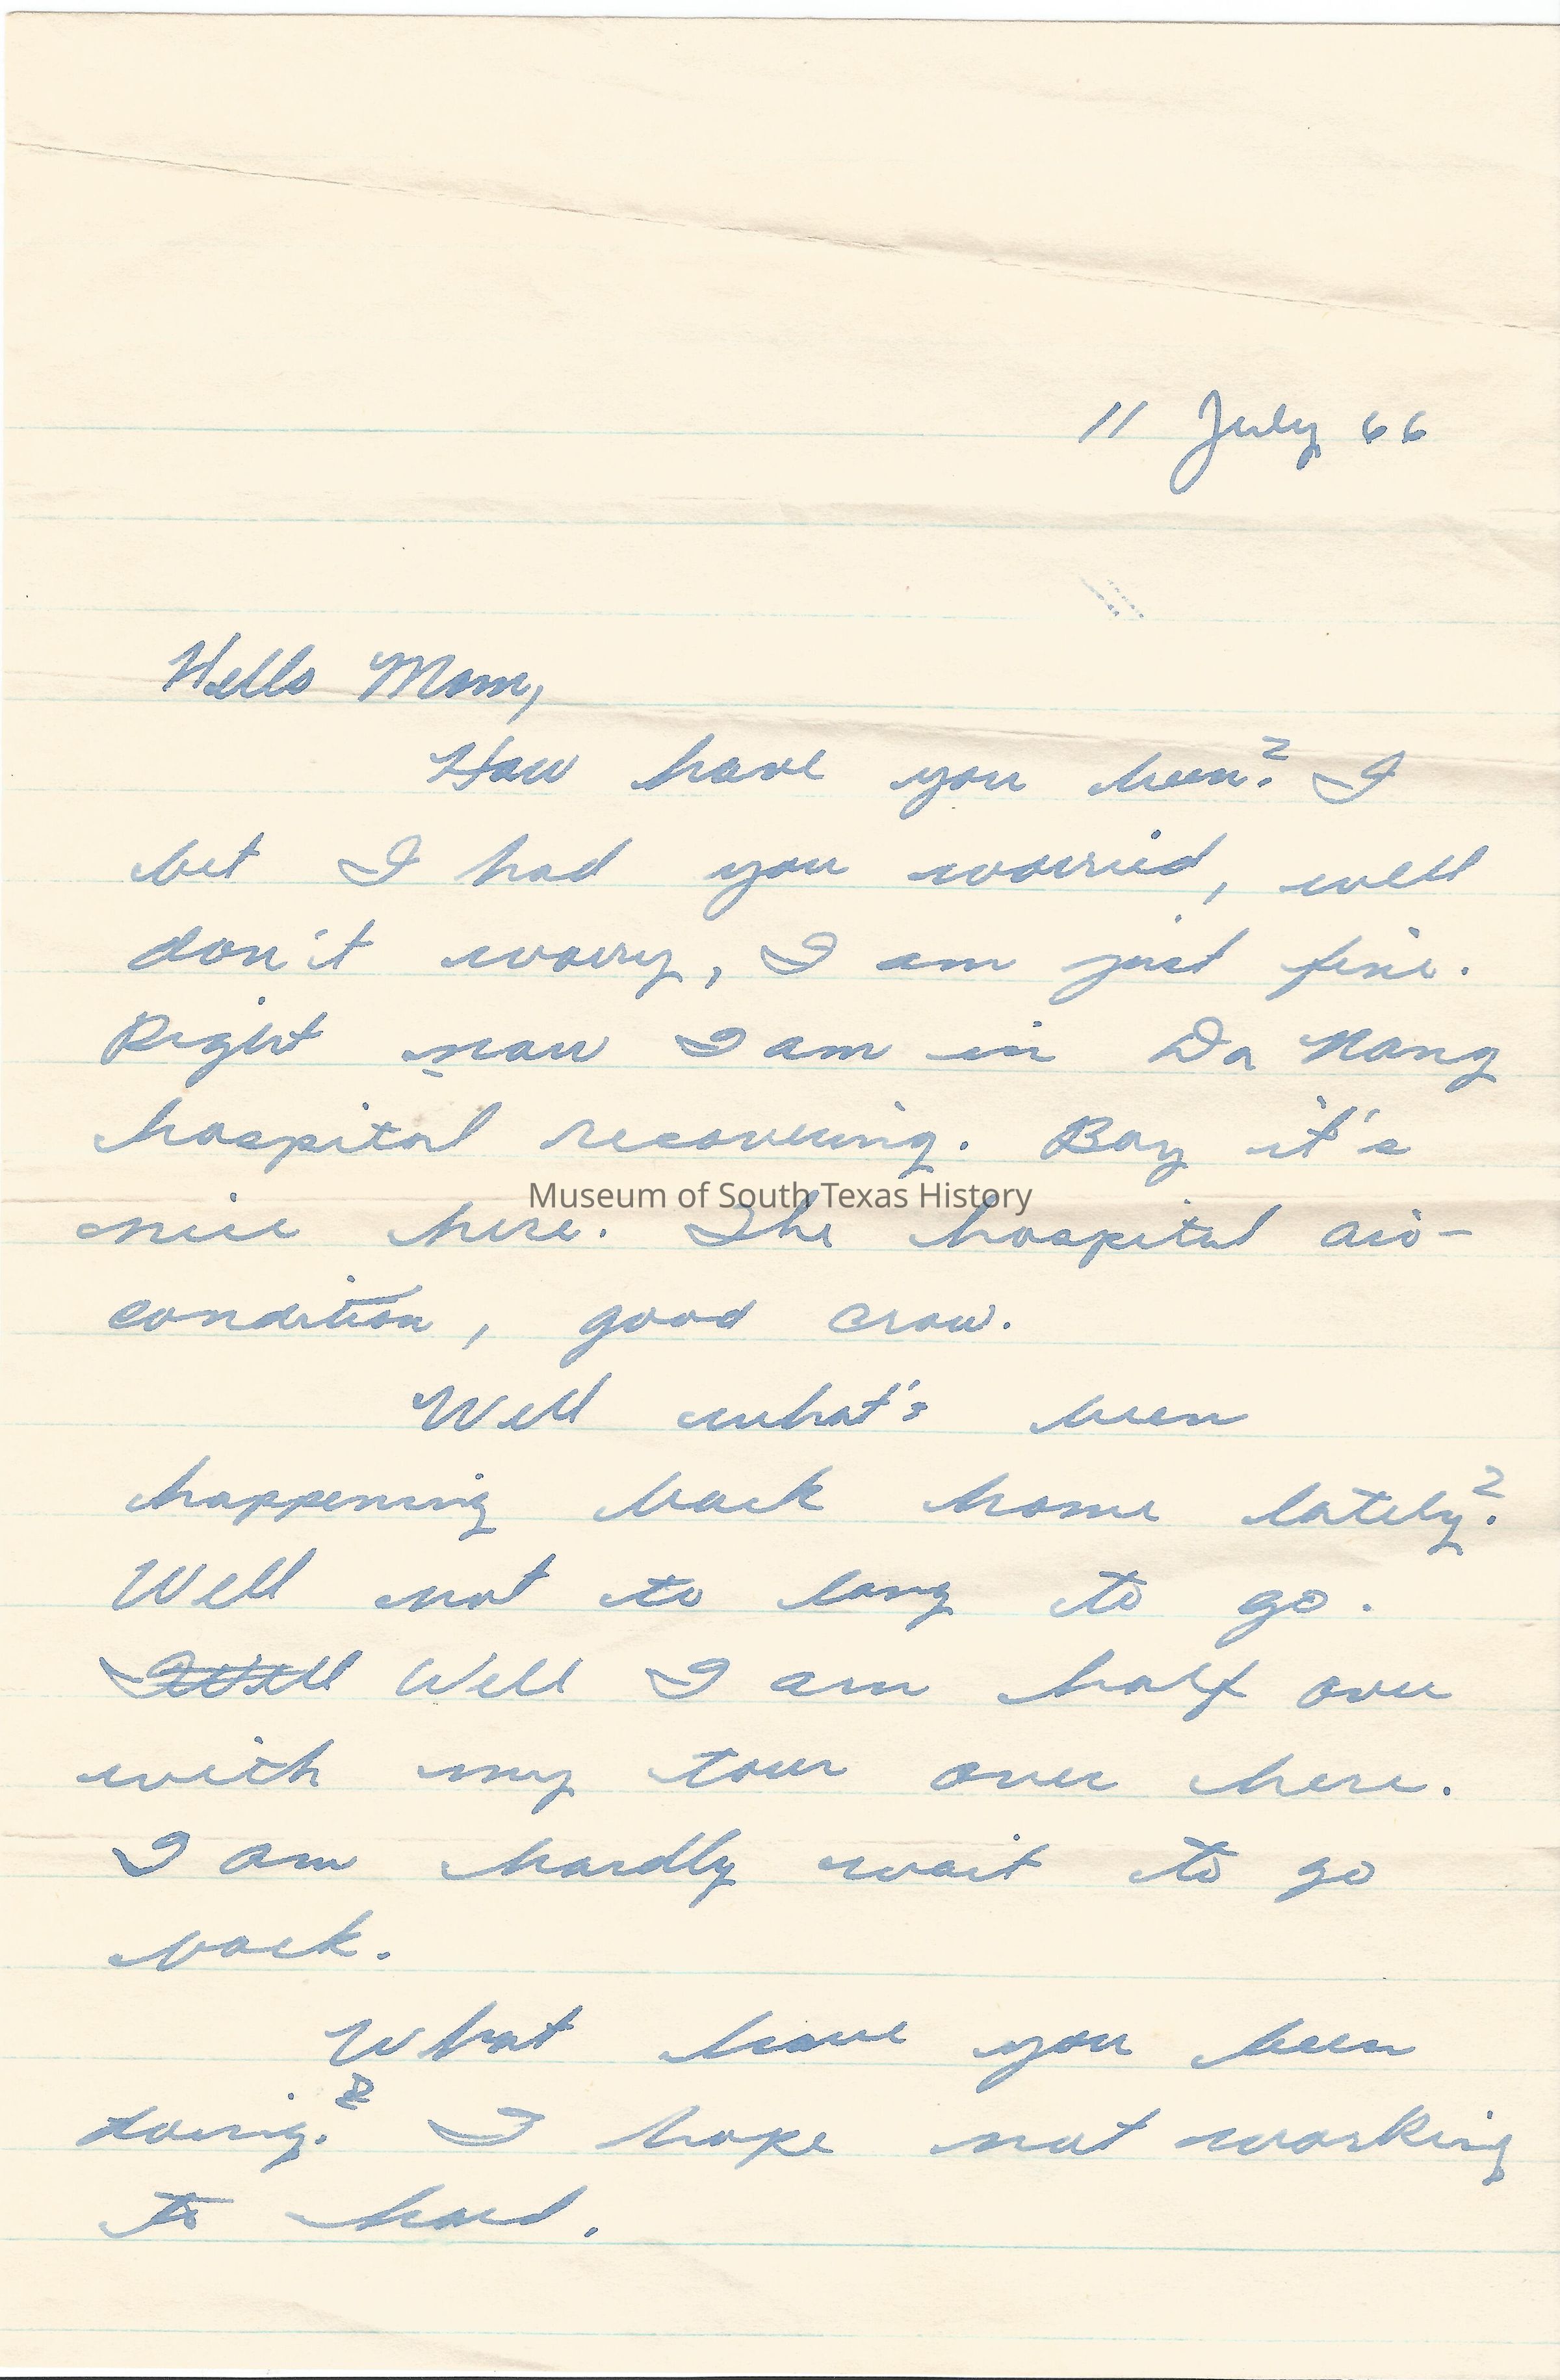 11 July 66
Hello Mom,
How have you been? I
bet I had you worried, well
don't worry, I am just fine.
Right now I am in Da Nang
hospital recovering. Boy it's
Museum of South Texas History
nice here. The hospital air-
condition, good crow.
Well what's been
happening back home lately?
Well not to long to go.
Well I am half over
with my tour over here.
I am hardly wait to go
back.
What have you been
doing? I hope not working
to hard.